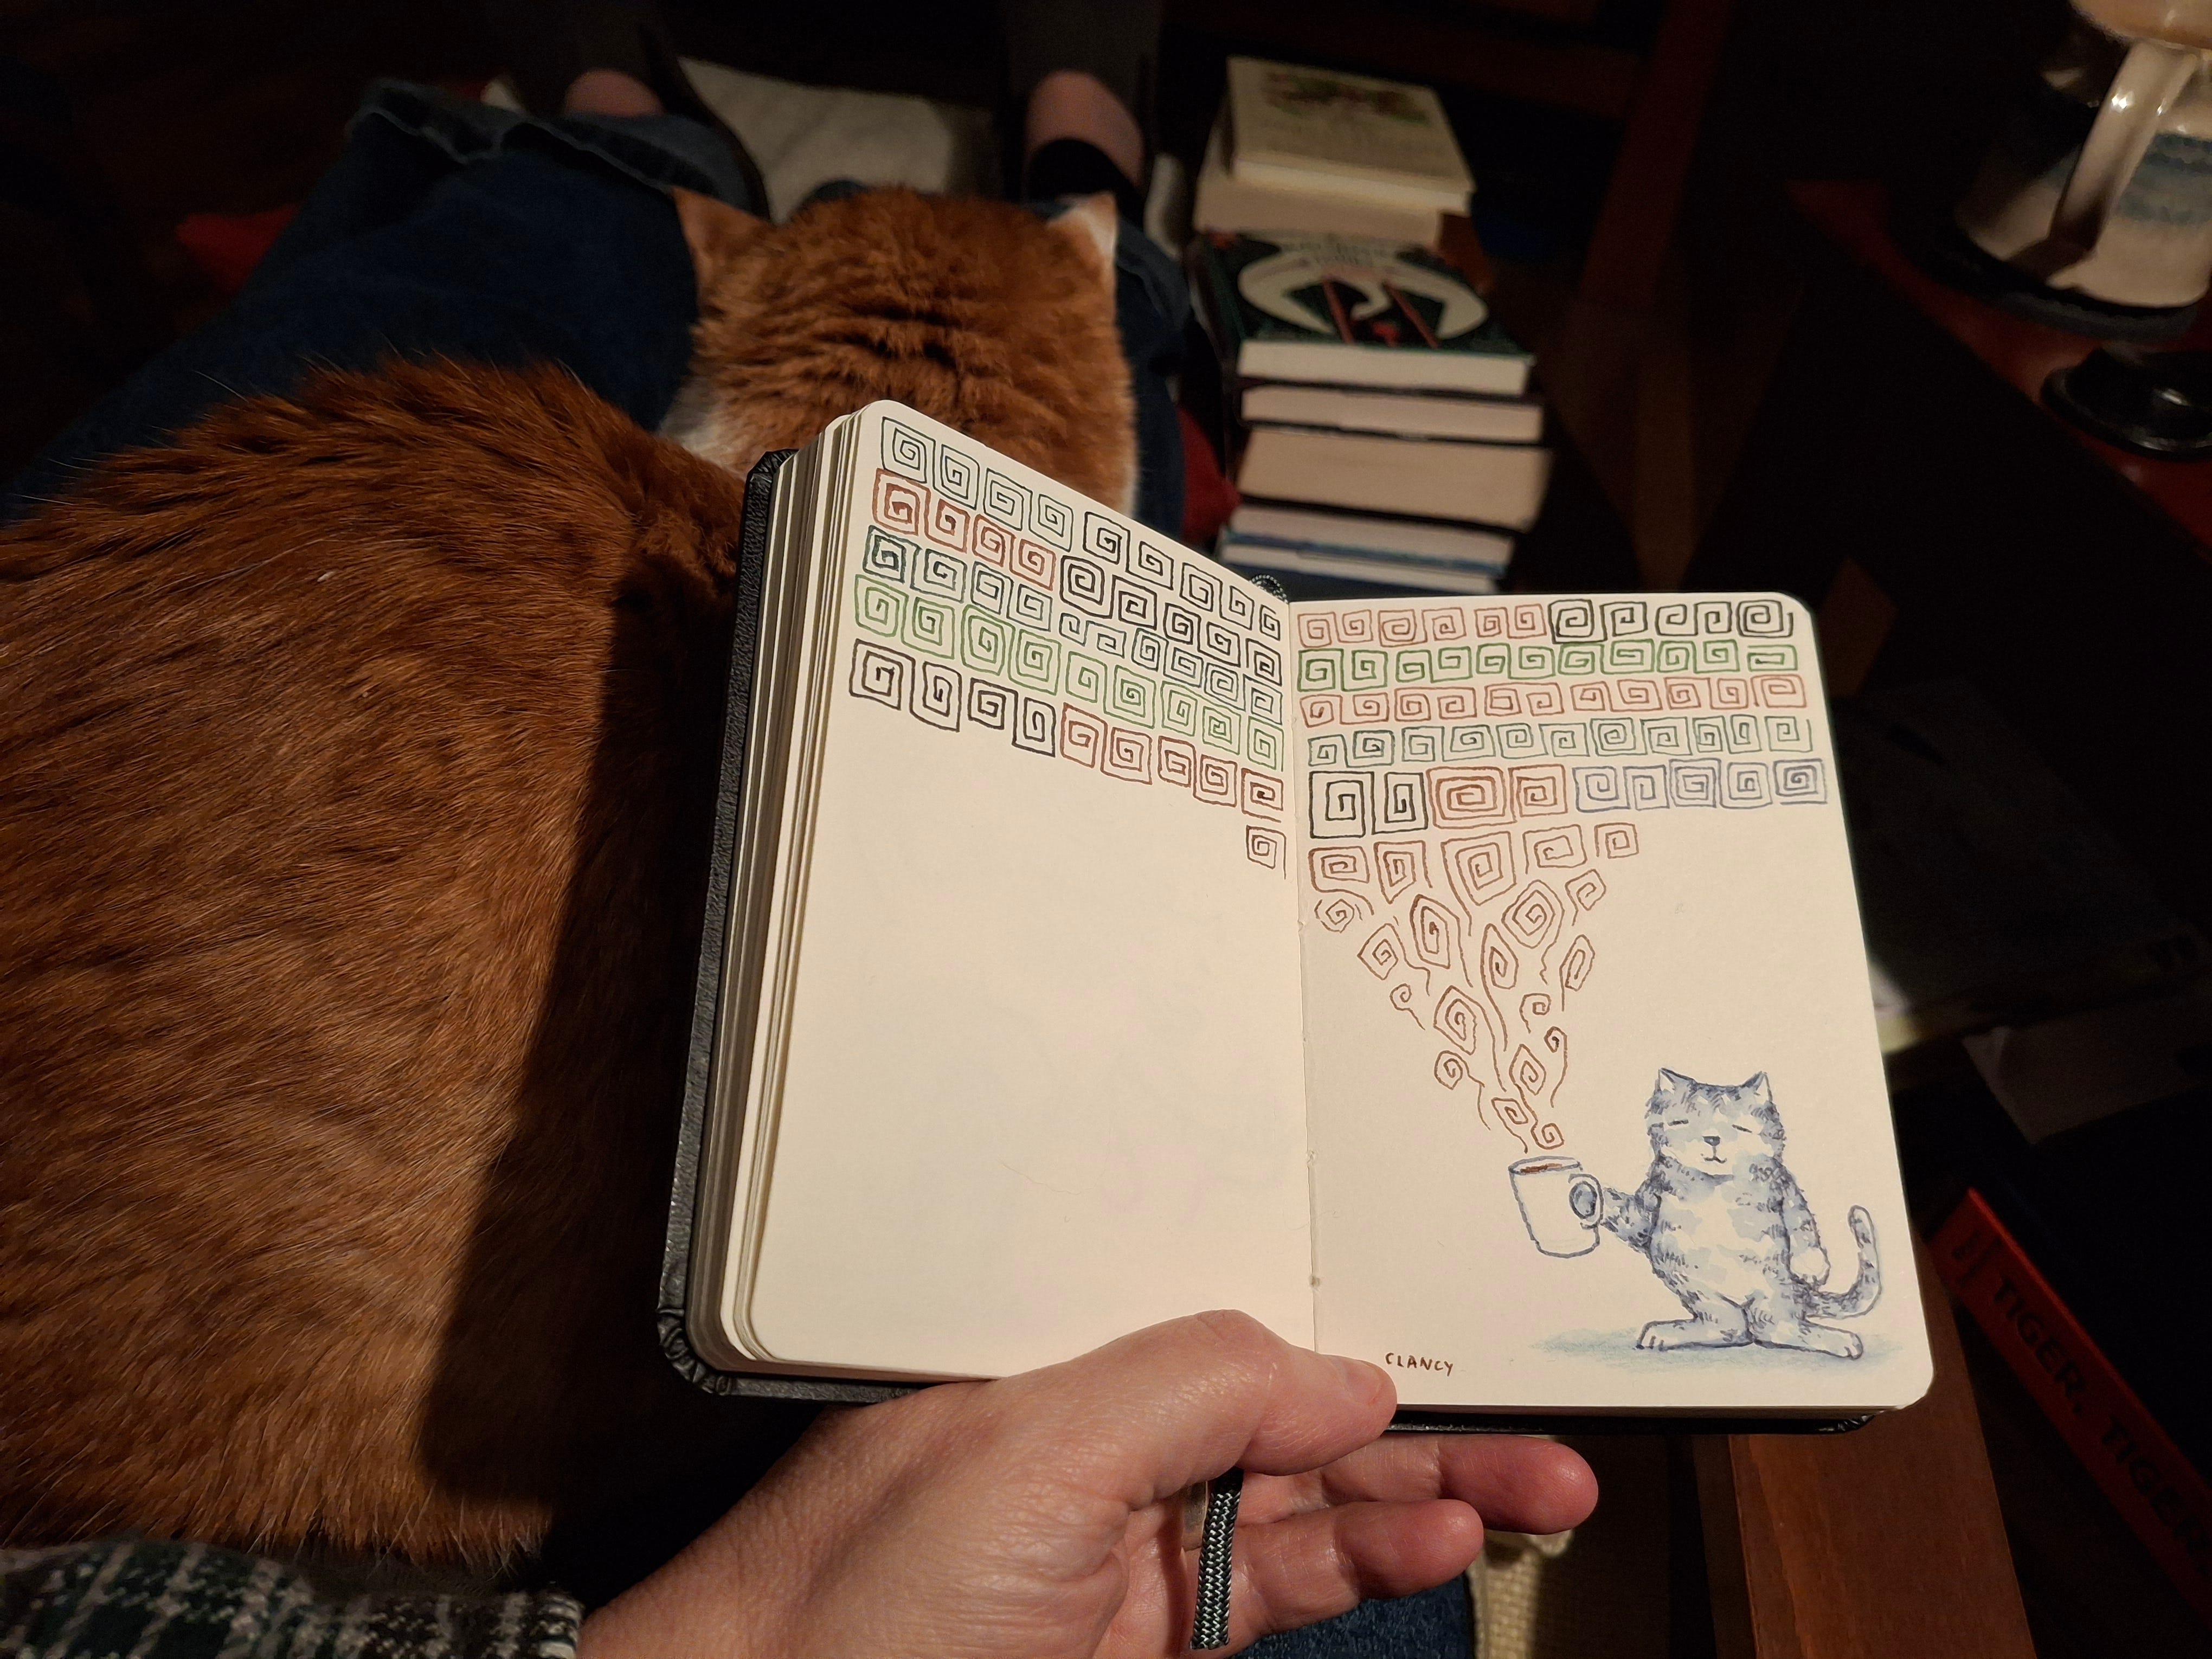 CLANCY
TIGER, TIGER